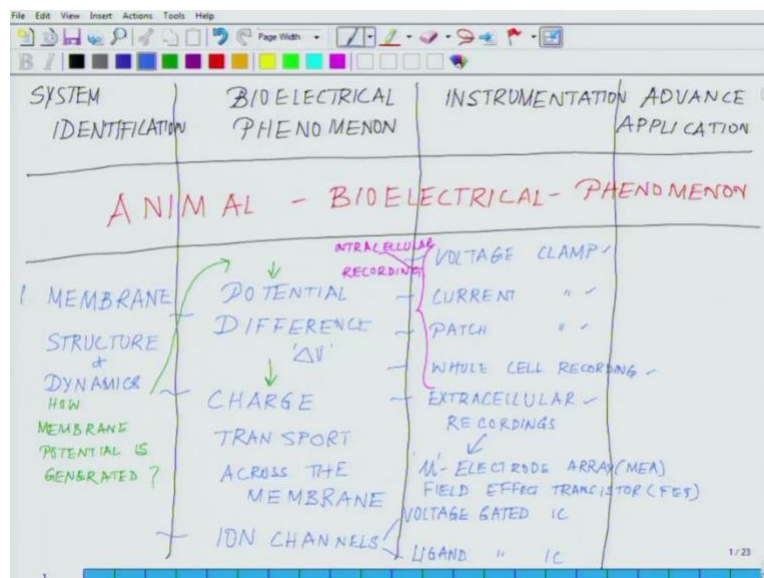 File Edit View Insert Actions Tools Help
Page Width
B I
SYSTEM IDENTIFICATION
BIOELECTRICAL PHENOMENON
INSTRUMENTATION
ADVANCE APPLICATION
ANIMAL - BIOELECTRICAL - PHENOMENON
1 MEMBRANE
STRUCTURE
&
DYNAMICS
HOW
MEMBRANE
POTENTIAL IS
GENERATED?
POTENTIAL
DIFFERENCE
'ΔV'
CHARGE
TRANSPORT
ACROSS THE
MEMBRANE
ION CHANNELS
INTRACELLULAR
RECORDING
- VOLTAGE CLAMP ✓
- CURRENT " ✓
- PATCH " ✓
- WHOLE CELL RECORDING ✓
- EXTRACELLULAR ✓
RECORDINGS
'M'- ELECTRODE ARRAY (MEA)
FIELD EFFECT TRANCISTOR (FET)
VOLTAGE GATED IC
LIGAND " IC
1/23
1